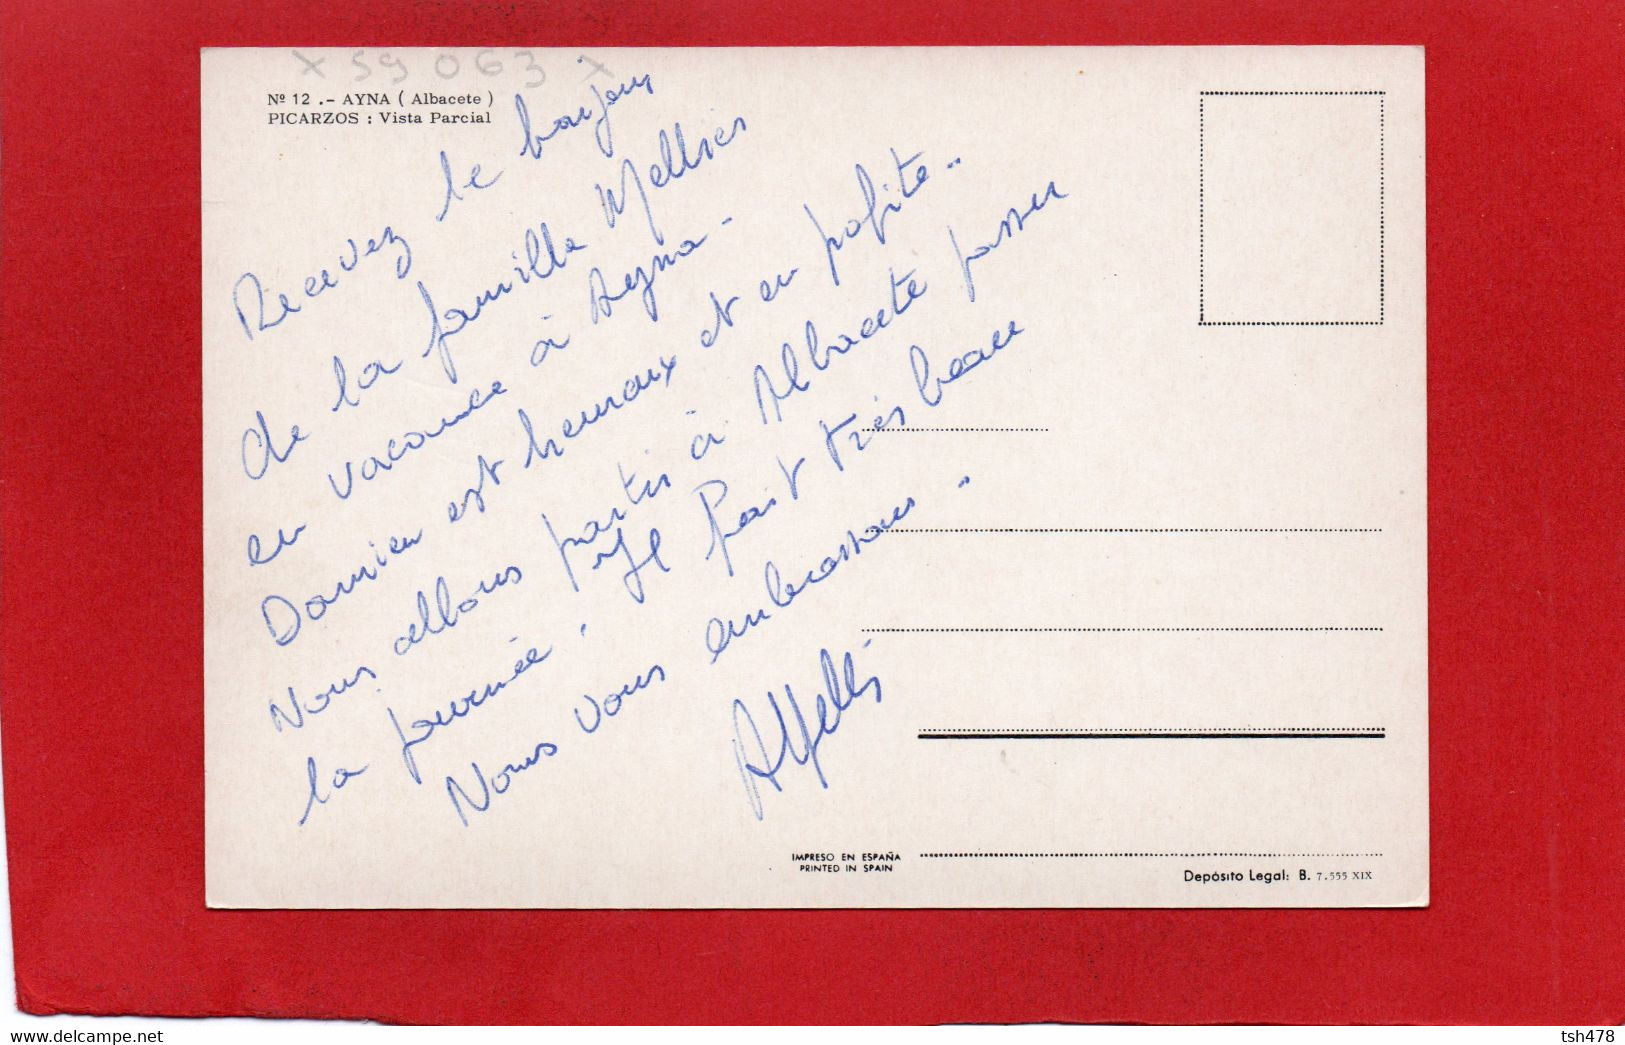 x 59 063 x
Nº 12 .- AYNA ( Albacete )
PICARZOS : Vista Parcial
Recevez le bonjour
de la famille Mellier
en vacance à Ayna -
Damien est heureux et en pofite..
Nous allons partir à Albacete passer
la journée, il fait très beau
Nous vous embrassons..
IMPRESO EN ESPAÑA
PRINTED IN SPAIN
Depósito Legal: B. 7.555 XIX
www.delcampe.net
tsh478